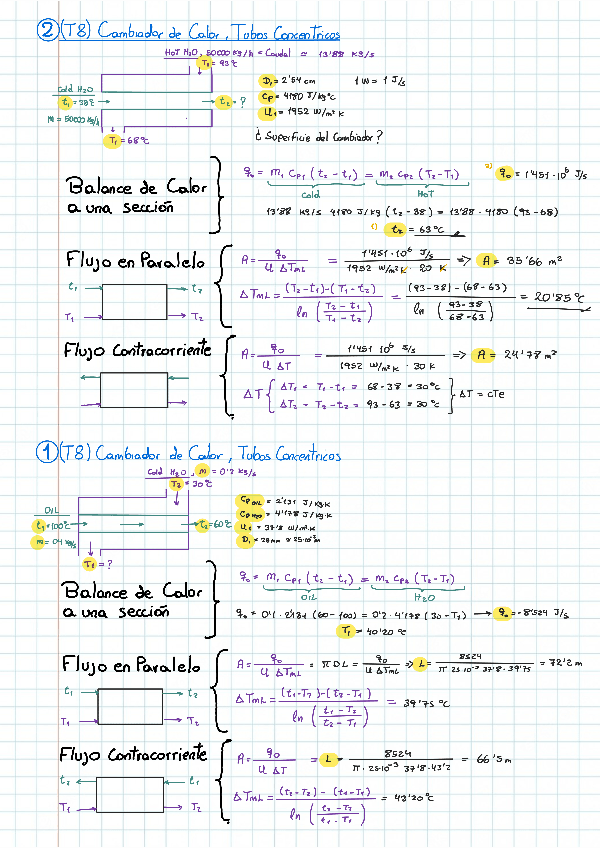 ② (T8) Cambiador de Calor, Tubos Concentricos
HOT H₂O, 50000 KG/h = Caudal = 13'88 KG/s
T₂ = 93ºC
Cold H₂O
t₁ = 38ºC
t₂ = ?
M = 50000 KG/h
T₁ = 68ºC
D₁ = 2'54 cm
1 W = 1 J/s
Cp = 4180 J/KgºC
U₁ = 1952 W/m² K
¿ Superficie del Cambiador?
Balance de Calor
a una sección
q₀ = m₁ Cp₁ (t₂ - t₁) = m₂ Cp₂ (T₂ - T₁)
Cold HOT
q₀ = 1'451 · 10⁶ J/s
13'88 KG/s 4180 J/Kg (t₂ - 38) = 13'88 · 4180 (93 - 68)
1) t₂ = 63ºC
Flujo en Paralelo
t₁ t₂
T₁ T₂
A = q₀ / U ΔTmL = 1'451 · 10⁶ J/s / 1952 W/m² K · 20 K => A = 35'66 m²
ΔTmL = (T₂ - t₁) - (T₁ - t₂) / ln (T₂ - t₁ / T₁ - t₂) = (93 - 38) - (68 - 63) / ln (93 - 38 / 68 - 63) = 20'85ºC
Flujo Contracorriente
A = q₀ / U ΔT = 1'451 10⁶ J/s / 1952 W/m² K · 30 K => A = 24'78 m²
ΔT { ΔT₁ = T₁ - t₁ = 68 - 38 = 30ºC
ΔT₂ = T₂ - t₂ = 93 - 63 = 30ºC } ΔT = cTe
① (T8) Cambiador de Calor, Tubos Concentricos
Cold H₂O, m = 0'2 KG/s
T₂ = 30ºC
OIL
t₁ = 100ºC
t₂ = 60ºC
T₁ = ?
Cp OIL = 2'131 J/Kg·K
Cp H₂O = 4'178 J/Kg·K
U₁ = 37'8 W/m²·K
Balance de Calor
a una sección
q₀ = m₁ Cp₁ (t₂ - t₁) = m₂ Cp₂ (T₂ - T₁)
OIL H₂O
q₀ = 0'1 · 2'131 (60 - 100) = 0'2 · 4'178 (30 - T₁) → q₀ = -8'524 J/s
T₁ = 40'20 ºC
Flujo en Paralelo
t₁ t₂
T₁ T₂
A = q₀ / U ΔTmL = π D L = q₀ / U ΔTmL => L = 8524 / π 25·10⁻³ 37'8 · 39'75 = 72'2 m
ΔTmL = (t₁ - T₂) - (t₂ - T₁) / ln (t₁ - T₂ / t₂ - T₁) = 39'75 ºC
Flujo Contracorriente
t₂ t₁
T₁ T₂
A = q₀ / U ΔT = L = 8524 / π · 25·10⁻³ 37'8 · 43'2 = 66'5 m
ΔTmL = (t₂ - T₂) - (t₁ - T₁) / ln (t₂ - T₂ / t₁ - T₁) = 43'20ºC